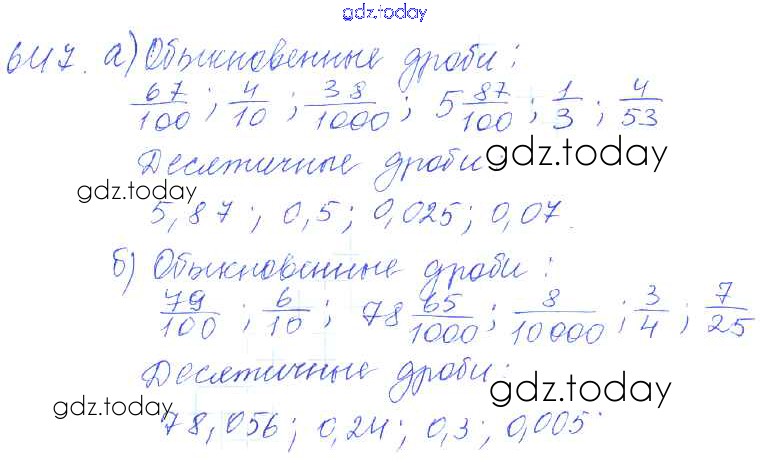 gdz.today
647. а) Обыкновенные дроби:
67/100; 4/10; 38/1000; 5 87/100; 1/3; 4/53
Десятичные дроби:
gdz.today
gdz.today
5,87; 0,5; 0,025; 0,07.
б) Обыкновенные дроби:
79/100; 6/10; 78 65/1000; 8/10000; 3/4; 7/25
Десятичные дроби:
gdz.today
gdz.today
78,056; 0,24; 0,3; 0,005.